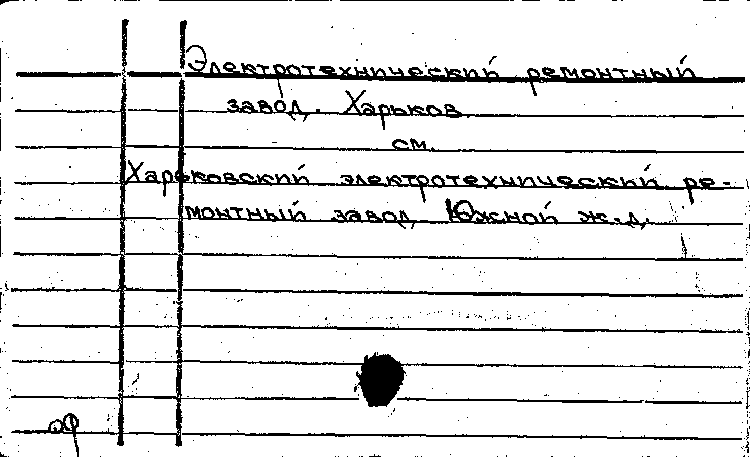 Электротехнический ремонтный
завод. Харьков
см.
Харьковский электротехнический ре-
монтный завод Южной ж.д.